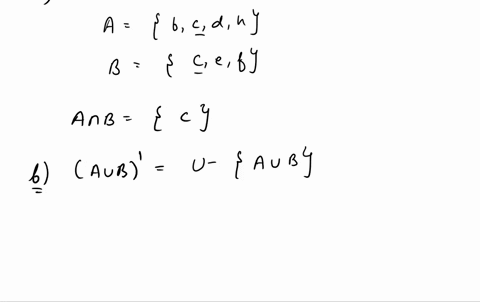 A = { b, c, d, h }
B = { c, e, f }
A∩B = { c }
b) (A∪B)' = U- { A∪B }